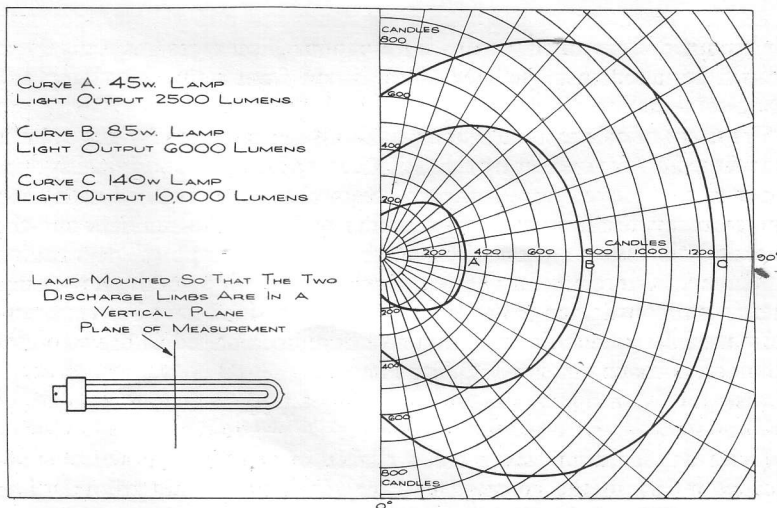 CURVE A. 45W. LAMP
LIGHT OUTPUT 2500 LUMENS
CURVE B. 85W. LAMP
LIGHT OUTPUT 6000 LUMENS
CURVE C 140W LAMP
LIGHT OUTPUT 10,000 LUMENS
LAMP MOUNTED SO THAT THE TWO
DISCHARGE LIMBS ARE IN A
VERTICAL PLANE
PLANE OF MEASUREMENT
CANDLES
800
600
400
200
200 400 600 800 1000 1200
CANDLES
A B C
90°
200
400
600
800
CANDLES
0°